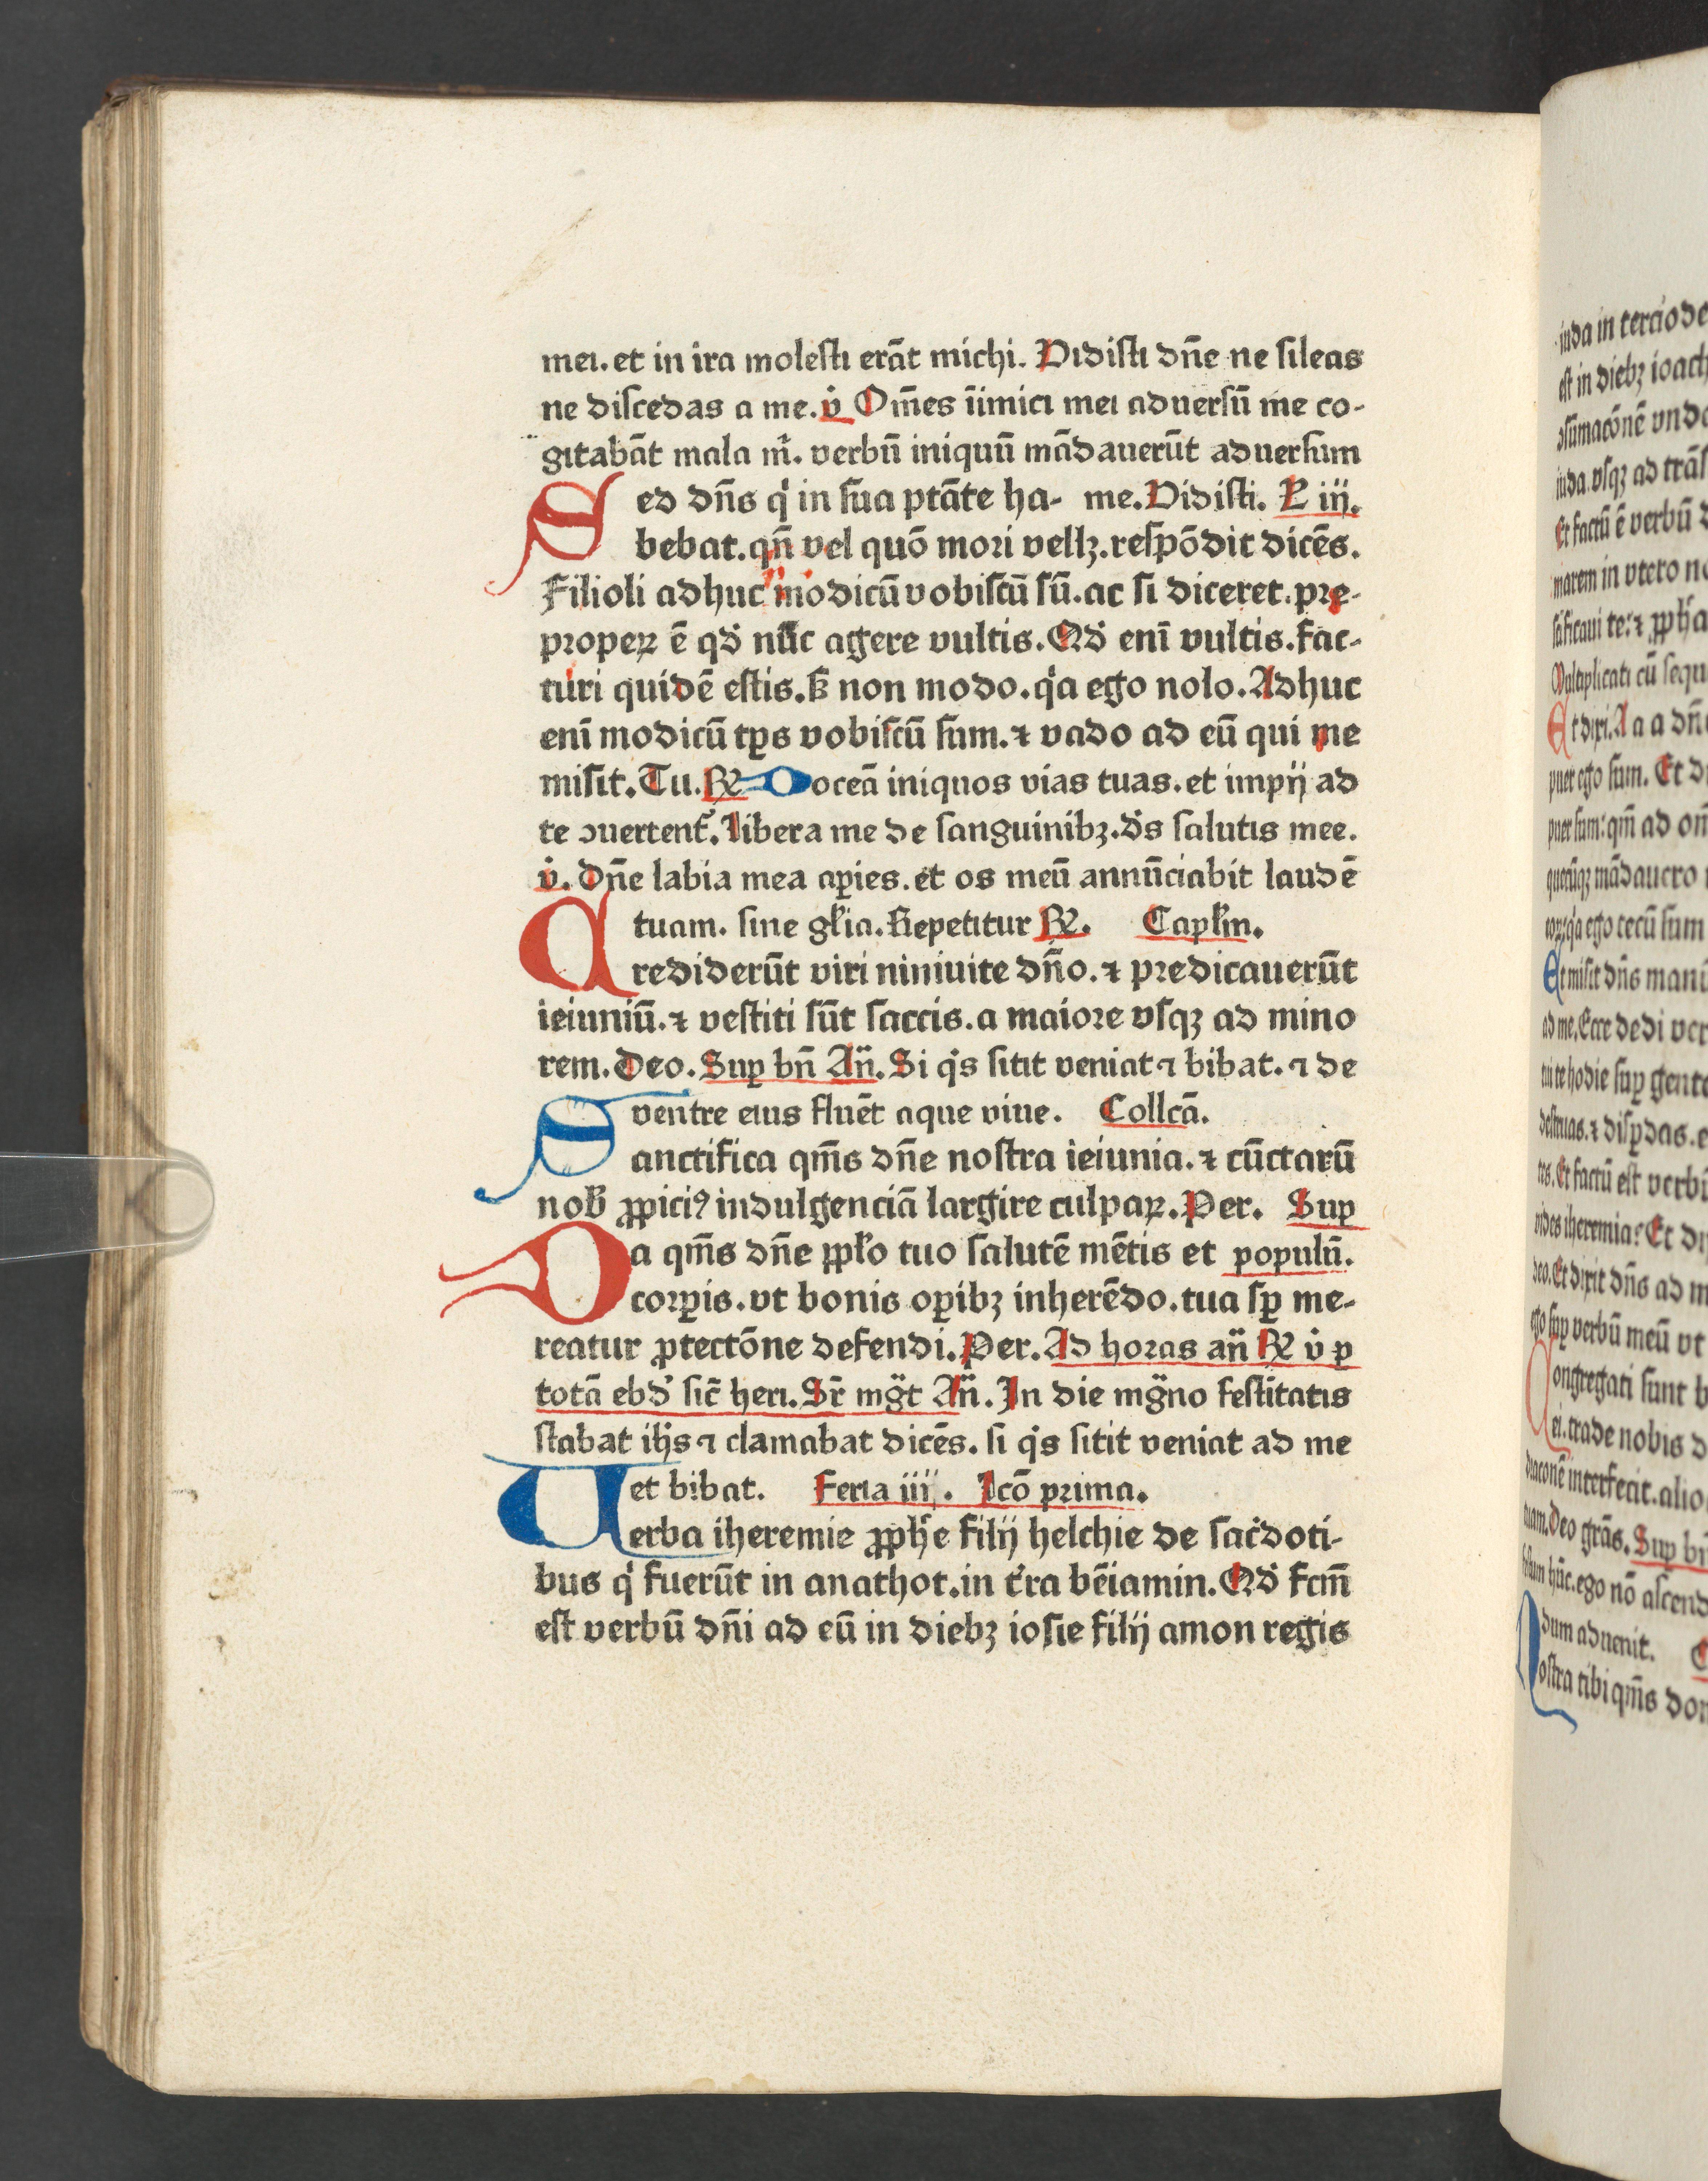 mei. et in ira molesti erāt michi. Vidisti dn̄e ne sileas
ne discedas a me. v̇ Om̄es iīmici mei aduersū me co-
gitabāt mala m̄. verbū iniquū mādauerūt aduersum
Sed dn̄s q̇ in sua ptāte ha- me. Vidisti. L iij.
bebat. qn̄ vel quō mori vellꝫ. respōdit dicēs.
Filioli adhuc modicū vobiscū sū. ac si diceret. pre-
properꝝ ē qḋ nūc agere vultis. Qḋ enī vultis. fac-
turi quidē estis. ẞ non modo. q̇a ego nolo. Adhuc
enī modicū tp̄s vobiscū sum. ⁊ vado ad eū qui me
misit. Tu. ℟ Doceā iniquos vias tuas. et impij ad
te ↄuertent̄. Libera me de sanguinibꝫ. ds̄ salutis mee.
v̇. Dn̄e labia mea aꝑies. et os meū annūciabit laudē
tuam. sine gl̄ia. Repetitur ℟. Capl̄m.
Crediderūt viri niniuite dn̄o. ⁊ predicauerūt
ieiuniū. ⁊ vestiti sūt saccis. a maiore vsqꝫ ad mino
rem. Deo. Suꝑ bn̄ An̄. Si q̇s sitit veniat ⁊ bibat. ⁊ de
ventre eius fluēt aque viue. Collcā.
Sanctifica qm̄s dn̄e nostra ieiunia. ⁊ cūctarū
nob̄ ꝓpiciꝰ indulgenciā largire culpaꝝ. Per. Suꝑ
Da qm̄s dn̄e ppl̄o tuo salutē mētis et populū.
corꝑis. vt bonis oꝑibꝫ inherēdo. tua sꝑ me-
reatur ꝓtectōne defendi. Per. Ad horas an̄ ℟ v̇ ꝑ
totā ebd̄ sic̄ heri. Sr̄ mgt̄ An̄. In die mḡno festītatis
stabat ih̄s ⁊ clamabat dicēs. si q̇s sitit veniat ad me
et bibat. Feria iiij. Lcō prima.
Uerba iheremie ꝓph̄e filij helchie de sac̄doti-
bus q̇ fuerūt in anathot. in t̄ra bēiamin. Qḋ fcm̄
est verbū dn̄i ad eū in diebꝫ iosie filij amon regis
iuda in tercio de
est in diebꝫ ioach
ↄsūmacōnē vnde
iuda vsqꝫ ad trās
Et factū ē verbū
marem in vtero no
sc̄ificaui te: ⁊ ꝓph̄a
Multiplicati cū sequ
Et dixi. A a a dn̄e
puer ego sum. Et di
puer sum: qm̄ ad om̄
quecūqꝫ mādauero
ego tecū sum
Et misit dn̄s manū
ad me. Ecce dedi ver
tui te hodie suꝑ gente
destruas. ⁊ disꝑdas. e
tes. Et factū est verbū
vides iheremia? Et di
deo. Et dixit dn̄s ad m
ego suꝑ verbū meū vt
Congregati sunt b
ei. trade nobis d
draconē interfecit. alio
tuam. Deo grās. Suꝑ bn̄
festum hūc. ego nō ascend
dum aduenit. C
Nostra tibi qm̄s dom